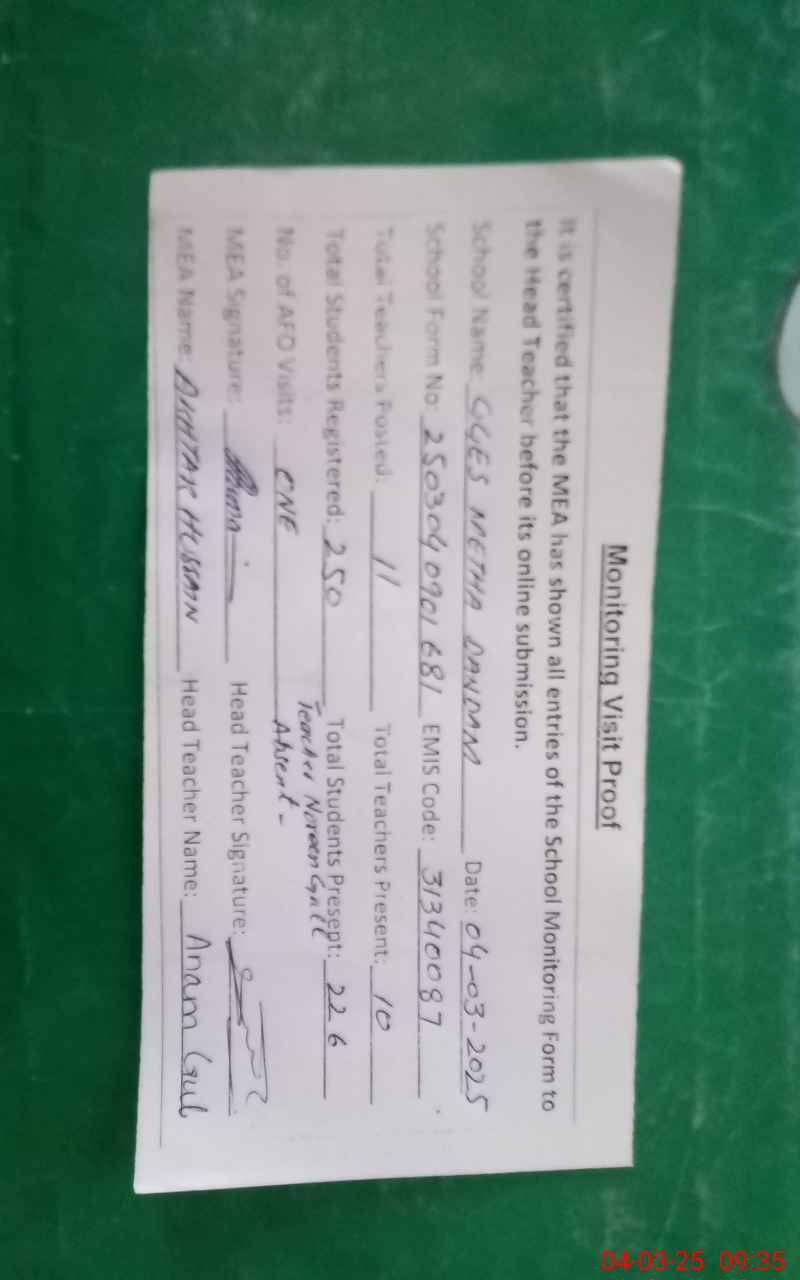 Monitoring Visit Proof
It is certified that the MEA has shown all entries of the School Monitoring Form to
the Head Teacher before its online submission.
School Name: GGES METHA DANDAM Date: 04-03-2025
School Form No: 2503040901681 EMIS Code: 31340087
Total Teachers Posted: 11 Total Teachers Present: 10
Total Students Registered: 250 Total Students Present: 226
Teacher Noreen Gull
No. of AFO Visits: ONE Absent-
MEA Signature: Head Teacher Signature:
MEA Name: AKHTAR HUSSAIN Head Teacher Name: Anam Gul
04-03-25 09:35